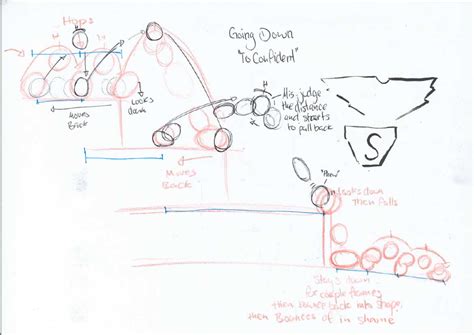 Hops
Going Down
"To Confident"
Looks
down
Moves
Back
Misjudge
the distance
and starts
to pull back
S
Moves
Back
"Phew"
Looks down
Then falls
Stays down
for couple frames
then Bounces of in shame